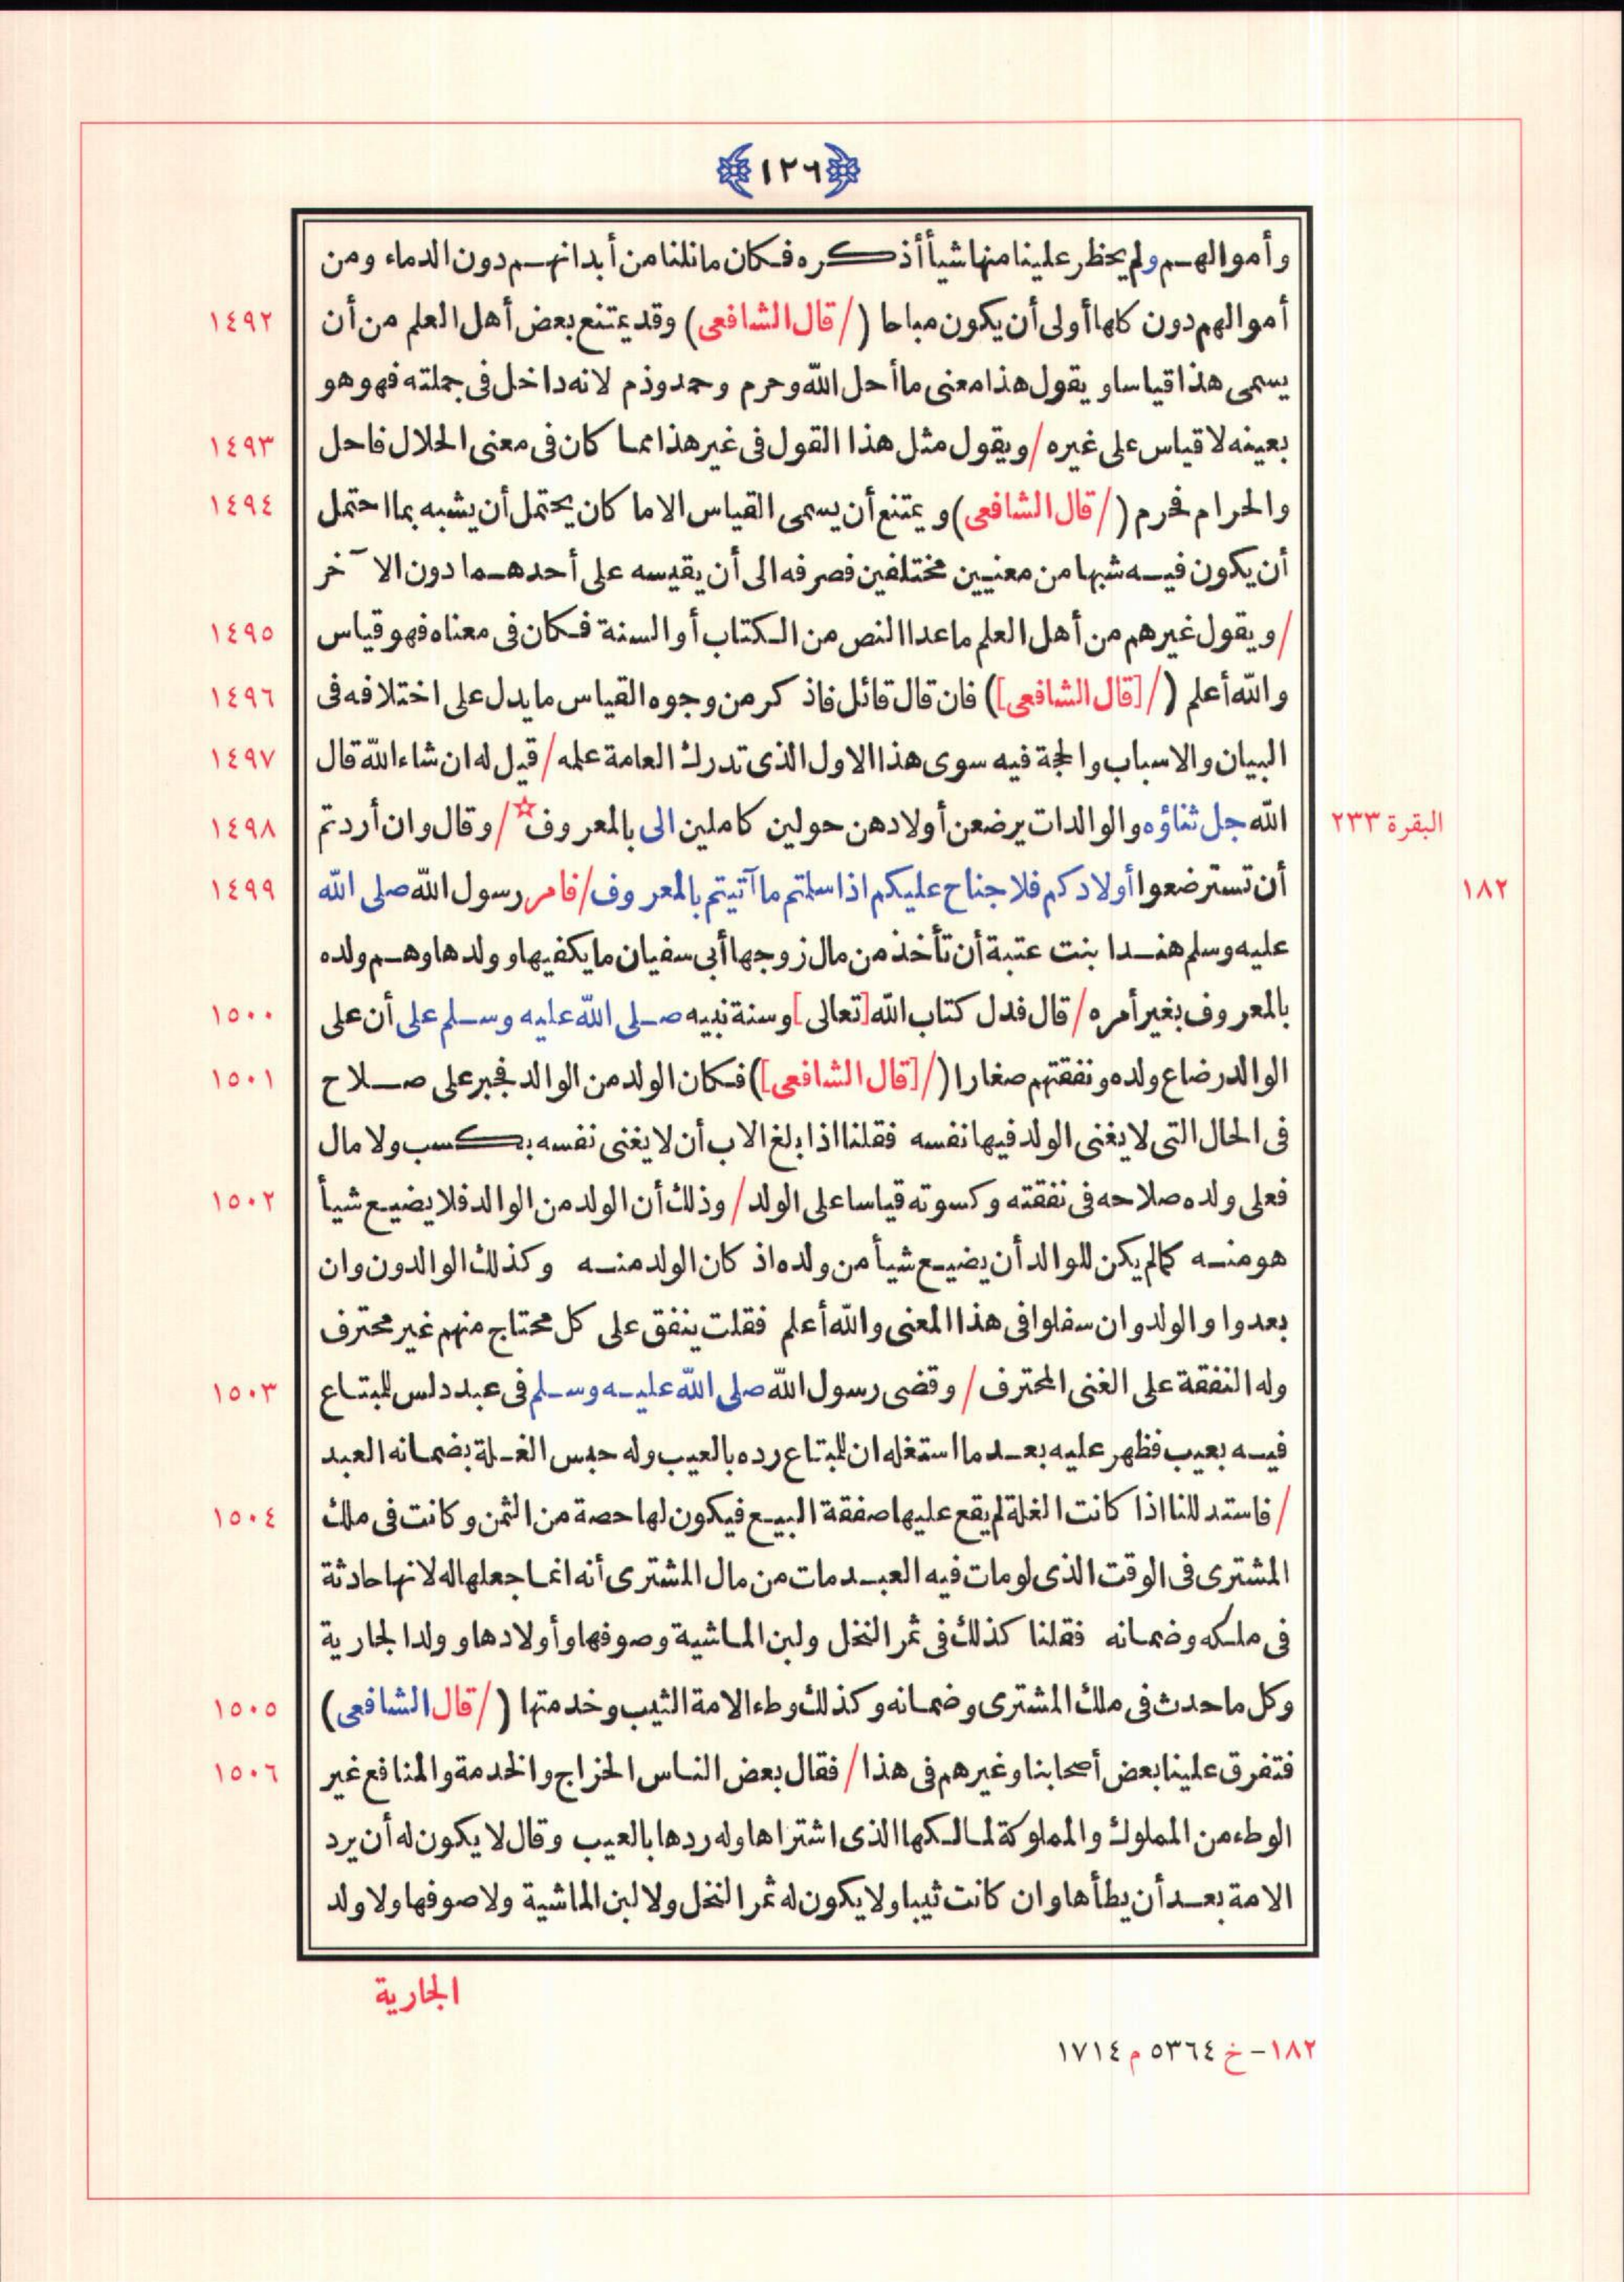 ١٢٦
وأموالهم ولم يحظر علينا منها شيأ أذكره فكان ما نلنا من أبدانهم دون الدماء ومن
أموالهم دون كلها أولى أن يكون مباحا (/قال الشافعى) وقد يمتنع بعض أهل العلم من أن ١٤٩٢
يسمى هذا قياسا و يقول هذا معنى ما أحل الله وحرم وحمد وذم لانه داخل فى جملته فهو هو
بعينه لا قياس على غيره /ويقول مثل هذا القول فى غير هذا مما كان فى معنى الحلال فاحل ١٤٩٣
والحرام فحرم (/قال الشافعى) و يمتنع أن يسمى القياس الا ما كان يحتمل أن يشبه بما احتمل ١٤٩٤
أن يكون فيه شبها من معنيين مختلفين فصرفه الى أن يقيسه على أحدهما دون الآخر
/و يقول غيرهم من أهل العلم ما عدا النص من الكتاب أو السنة فكان فى معناه فهو قياس ١٤٩٥
والله أعلم (/[قال الشافعى]) فان قال قائل فاذكر من وجوه القياس ما يدل على اختلافه فى ١٤٩٦
البيان والاسباب والحجة فيه سوى هذا الاول الذى تدرك العامة علمه /قيل له ان شاء الله قال ١٤٩٧
الله جل ثناؤه والوالدات يرضعن أولادهن حولين كاملين الى بالمعروف☆ /وقال وان أردتم ١٤٩٨ البقرة ٢٣٣
أن تسترضعوا أولادكم فلا جناح عليكم اذا سلمتم ما آتيتم بالمعروف /فامر رسول الله صلى الله ١٤٩٩ ١٨٢
عليه وسلم هندا بنت عتبة أن تأخذ من مال زوجها أبى سفيان ما يكفيها و ولدها وهم ولده
بالمعروف بغير أمره /قال فدل كتاب الله [تعالى] وسنة نبيه صلى الله عليه وسلم على أن على ١٥٠٠
الوالد رضاع ولده ونفقتهم صغارا (/[قال الشافعى]) فكان الولد من الوالد فجبر على صلاح ١٥٠١
فى الحال التى لا يغنى الولد فيها نفسه فقلنا اذا بلغ الاب أن لا يغنى نفسه بكسب ولا مال
فعلى ولده صلاحه فى نفقته وكسوته قياسا على الولد /وذلك أن الولد من الوالد فلا يضيع شيأ ١٥٠٢
هو منه كما لم يكن للوالد أن يضيع شيأ من ولده اذ كان الولد منه وكذلك الوالدون وان
بعدوا والولد وان سفلوا فى هذا المعنى والله أعلم فقلت ينفق على كل محتاج منهم غير محترف
وله النفقة على الغنى المحترف /وقضى رسول الله صلى الله عليه وسلم فى عبد دلس للبتاع ١٥٠٣
فيه بعيب فظهر عليه بعد ما استغله ان للبتاع رده بالعيب وله حبس الغلة بضمانه العبد
/فاستدللنا اذا كانت الغلة لم يقع عليها صفقة البيع فيكون لها حصة من الثمن وكانت فى ملك ١٥٠٤
المشترى فى الوقت الذى لو مات فيه العبد مات من مال المشترى أنه انما جعلها له لانها حادثة
فى ملكه وضمانه فقلنا كذلك فى ثمر النخل ولبن الماشية وصوفها وأولادها و ولد الجارية
وكل ما حدث فى ملك المشترى وضمانه وكذلك وطء الامة الثيب وخدمتها (/قال الشافعى) ١٥٠٥
فتفرق علينا بعض أصحابنا وغيرهم فى هذا /فقال بعض الناس الخراج والخدمة والمنافع غير ١٥٠٦
الوطء من المملوك والمملوكة لمالكها الذى اشتراها وله ردها بالعيب وقال لا يكون له أن يرد
الامة بعد أن يطأها وان كانت ثيبا ولا يكون له ثمر النخل ولا لبن الماشية ولا صوفها ولا ولد
الجارية
١٨٢- خ ٥٣٦٤ م ١٧١٤